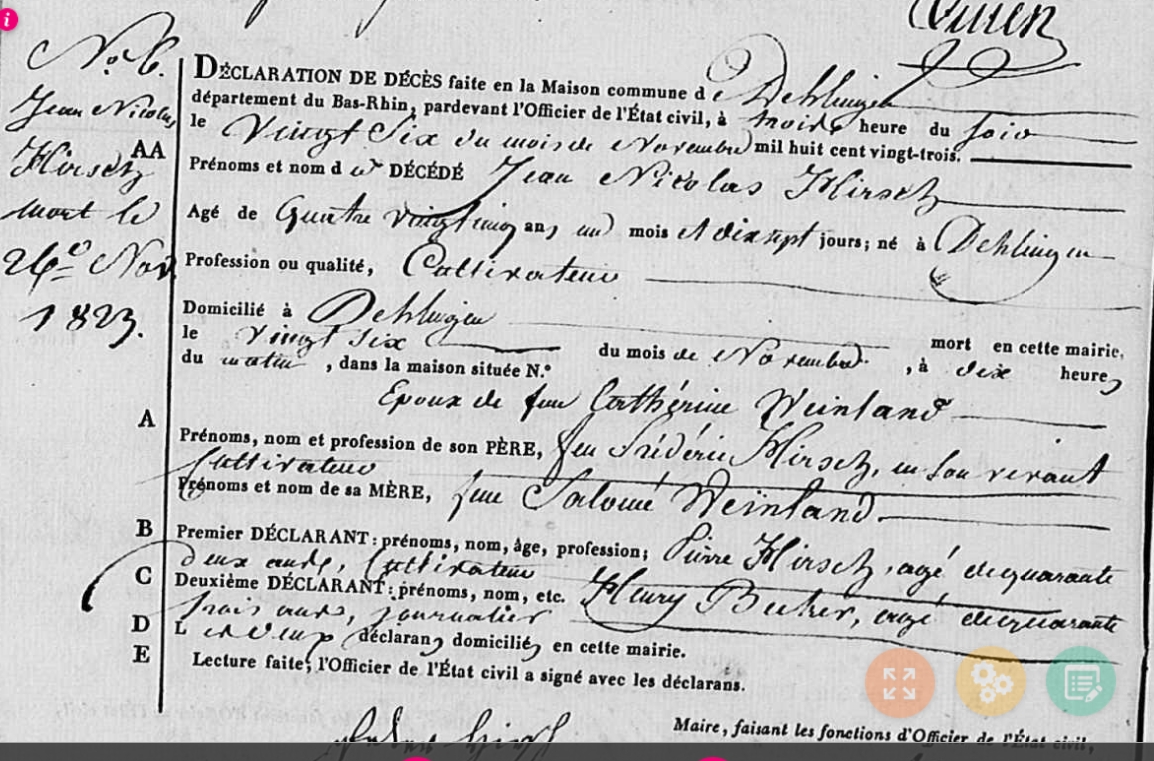 N.º 6.
Jean Nicolas
Hirsch
mort le
26.e Nov
1823.
DÉCLARATION DE DÉCÈS faite en la Maison commune de Dehlingen
département du Bas-Rhin, pardevant l'Officier de l'État civil, à trois heure du soir
le Vingt Six du mois de Novembre mil huit cent vingt-trois.
AA
Prénoms et nom d u DÉCÉDÉ Jean Nicolas Hirsch
Agé de Quatre Vingt cinq ans, un mois et dix sept jours; né à Dehlingen
Profession ou qualité, Cultivateur
Domicilié à Dehlingen mort en cette mairie,
le Vingt Six du mois de Novembre, à dix heures
du matin, dans la maison située N.º
Epoux de feue Cathérine Weinland
A
Prénoms, nom et profession de son PÈRE, feu Frédéric Hirsch, en son vivant
Cultivateur
Prénoms et nom de sa MÈRE, feue Salomé Weinland
B Premier DÉCLARANT: prénoms, nom, âge, profession; Pierre Hirsch, agé de quarante
deux ans, Cultivateur
C Deuxième DÉCLARANT: prénoms, nom, etc. Henry Bucher, agé de quarante
trois ans, journalier
D Les deux déclarans domiciliés en cette mairie.
E Lecture faite, l'Officier de l'État civil a signé avec les déclarans.
Maire, faisant les fonctions d'Officier de l'État civil,